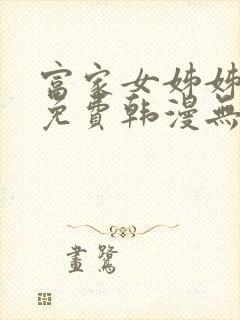 富家女姊姊
免費韩漫無
畫鷺